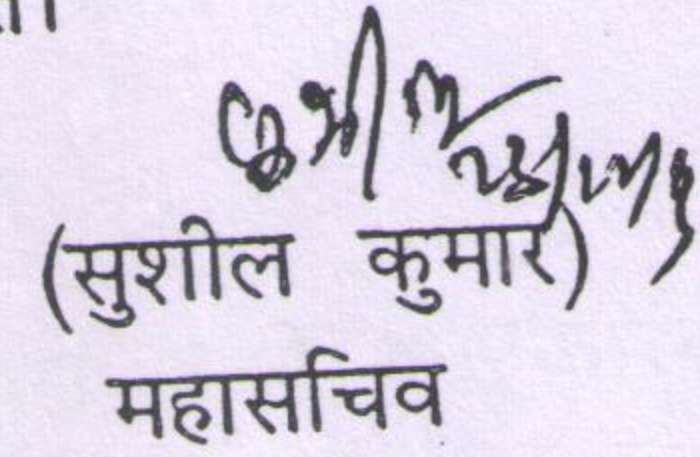 (सुशील कुमार)
महासचिव